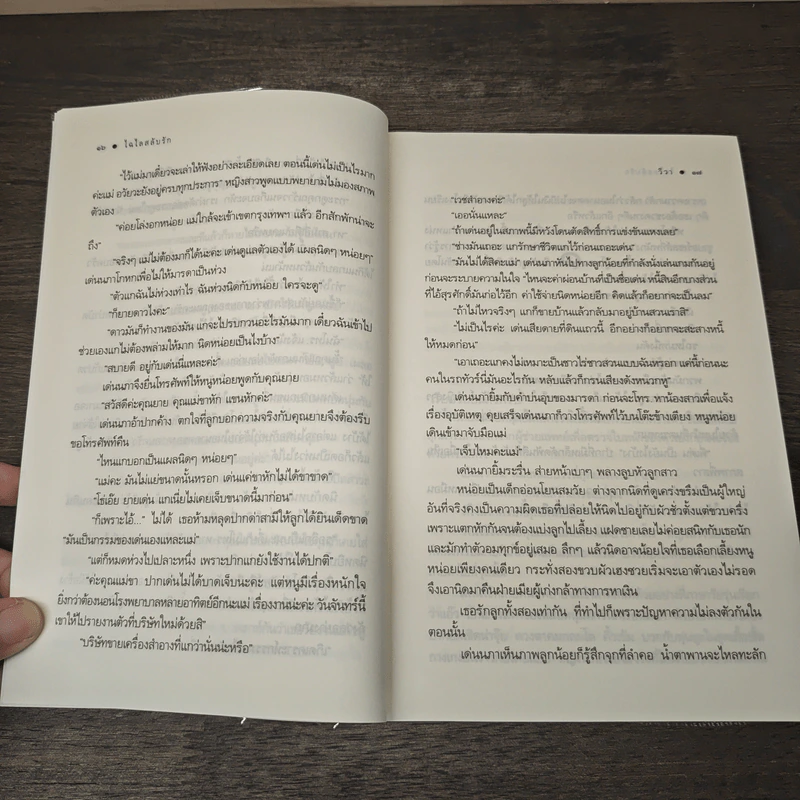 ๑๖ ● ไฉไลสลับรัก
"ไว้แม่มาเดี๋ยวจะเล่าให้ฟังอย่างละเอียดเลย ตอนนี้เด่นไม่เป็นไรมาก
ค่ะแม่ อวัยวะยังอยู่ครบทุกประการ" หญิงสาวพูดแบบพยายามไม่มองสภาพ
ตัวเอง
"ค่อยโล่งอกหน่อย แม่ใกล้จะเข้าเขตกรุงเทพฯ แล้ว อีกสักพักน่าจะ
ถึง"
"จริงๆ แม่ไม่ต้องมาก็ได้นะคะ เด่นดูแลตัวเองได้ แผลนิดๆ หน่อยๆ"
เด่นนภาโกหกเพื่อไม่ให้มารดาเป็นห่วง
"ตัวแกฉันไม่ห่วงเท่าไร ฉันห่วงนิดกับหน่อย ใครจะดู"
"ก็ยายดาวไงคะ"
"ดาวมันก็ทำงานของมัน แกจะไปรบกวนอะไรมันมาก เดี๋ยวฉันเข้าไป
ช่วยเองแกไม่ต้องพล่ามให้มาก นิดหน่อยเป็นไงบ้าง"
"สบายดี อยู่กับเด่นนี่แหละค่ะ"
เด่นนภาจึงยื่นโทรศัพท์ให้หนูหน่อยพูดกับคุณยาย
"สวัสดีค่ะคุณยาย คุณแม่ขาหัก แขนหักค่ะ"
เด่นนภาอ้าปากค้าง ตกใจที่ลูกบอกความจริงกับคุณยายจึงต้องรีบ
ขอโทรศัพท์คืน
"ไหนแกบอกเป็นแผลนิดๆ หน่อยๆ"
"แม่คะ มันไม่แย่ขนาดนั้นหรอก เด่นแค่ขาหักไม่ได้ขาขาด"
"โธ่เอ๊ย ยายเด่น แกเนี่ยไม่เคยเจ็บขนาดนี้มาก่อน"
"ก็เพราะไอ้..." ไม่ได้ เธอห้ามหลุดปากด่าสามีให้ลูกได้ยินเด็ดขาด
"มันเป็นกรรมของเด่นเองแหละแม่"
"แต่ก็หมดห่วงไปเปลาะหนึ่ง เพราะปากแกยังใช้งานได้ปกติ"
"ค่ะคุณแม่ขา ปากเด่นไม่ได้บาดเจ็บนะคะ แต่หนูมีเรื่องหนักใจ
ยิ่งกว่าต้องนอนโรงพยาบาลหลายอาทิตย์อีกนะแม่ เรื่องงานน่ะค่ะ วันจันทร์นี้
เขาให้ไปรายงานตัวที่บริษัทใหม่ด้วยสิ"
"บริษัทขายเครื่องสำอางที่แกว่านั่นน่ะหรือ"
วีวา ● ๑๗
"เวชสำอางค่ะ"
"เออนั่นแหละ"
"ถ้าเด่นอยู่ในสภาพนี้มีหวังโดนตัดสิทธิ์การแข่งขันแหงเลย"
"ช่างมันเถอะ แกรักษาชีวิตแกไว้ก่อนเถอะเด่น"
"มันไม่ได้สิคะแม่" เด่นนภาหันไปทางลูกน้อยที่กำลังนั่งเล่นเกมกันอยู่
ก่อนจะระบายความในใจ "ไหนจะค่าผ่อนบ้านที่เป็นชื่อเด่น หนี้สินอีกบางส่วน
ที่ไอ้สุรศักดิ์มันก่อไว้อีก ค่าใช้จ่ายนิดหน่อยอีก คิดแล้วก็อยากจะเป็นลม"
"ถ้าไม่ไหวจริงๆ แกก็ขายบ้านแล้วกลับมาอยู่บ้านสวนเราสิ"
"ไม่เป็นไรค่ะ เด่นเสียดายที่ดินแถวนี้ อีกอย่างก็อยากจะสะสางหนี้
ให้หมดก่อน"
"เอาเถอะแกคงไม่เหมาะเป็นชาวไร่ชาวสวนแบบฉันหรอก แค่นี้ก่อนนะ
คนในรถทัวร์นี่มันอะไรกัน หลับแล้วก็กรนเสียงดังหนวกหู"
เด่นนภายิ้มกับคำบ่นอุบของมารดา ก่อนจะโทร. หาน้องสาวเพื่อแจ้ง
เรื่องอุบัติเหตุ คุยเสร็จเด่นนภาก็วางโทรศัพท์ไว้บนโต๊ะข้างเตียง หนูหน่อย
เดินเข้ามาจับมือแม่
"เจ็บไหมคะแม่"
เด่นนภายิ้มระรื่น ส่ายหน้าเบาๆ พลางลูบหัวลูกสาว
หน่อยเป็นเด็กอ่อนโยนสมวัย ต่างจากนิดที่ดูเคร่งขรึมเป็นผู้ใหญ่
อันที่จริงคงเป็นความผิดเธอที่ปล่อยให้นิดไปอยู่กับผัวชั่วตั้งแต่ขวบครึ่ง
เพราะแตกหักกันจนต้องแบ่งลูกไปเลี้ยง แฝดชายเลยไม่ค่อยสนิทกับเธอนัก
และมักทำตัวอมทุกข์อยู่เสมอ ลึกๆ แล้วนิดอาจน้อยใจที่เธอเลือกเลี้ยงหนู
หน่อยเพียงคนเดียว กระทั่งสองขวบผัวเฮงซวยเริ่มจะเอาตัวเองไม่รอด
จึงเอานิดมาคืนฝ่ายเมียผู้เก่งกล้าทางการหาเงิน
เธอรักลูกทั้งสองเท่ากัน ที่ทำไปก็เพราะปัญหาความไม่ลงตัวกันใน
ตอนนั้น
เด่นนภาเห็นภาพลูกน้อยก็รู้สึกจุกที่ลำคอ น้ำตาพานจะไหลทะลัก